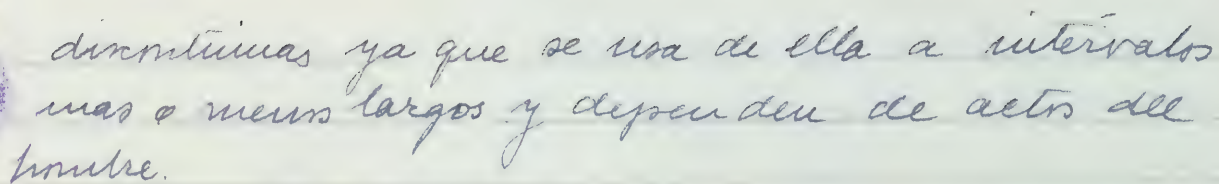 discontínuas ya que se usa de ella a intérvalos
mas o menos largos y dependen de actos del
hombre.